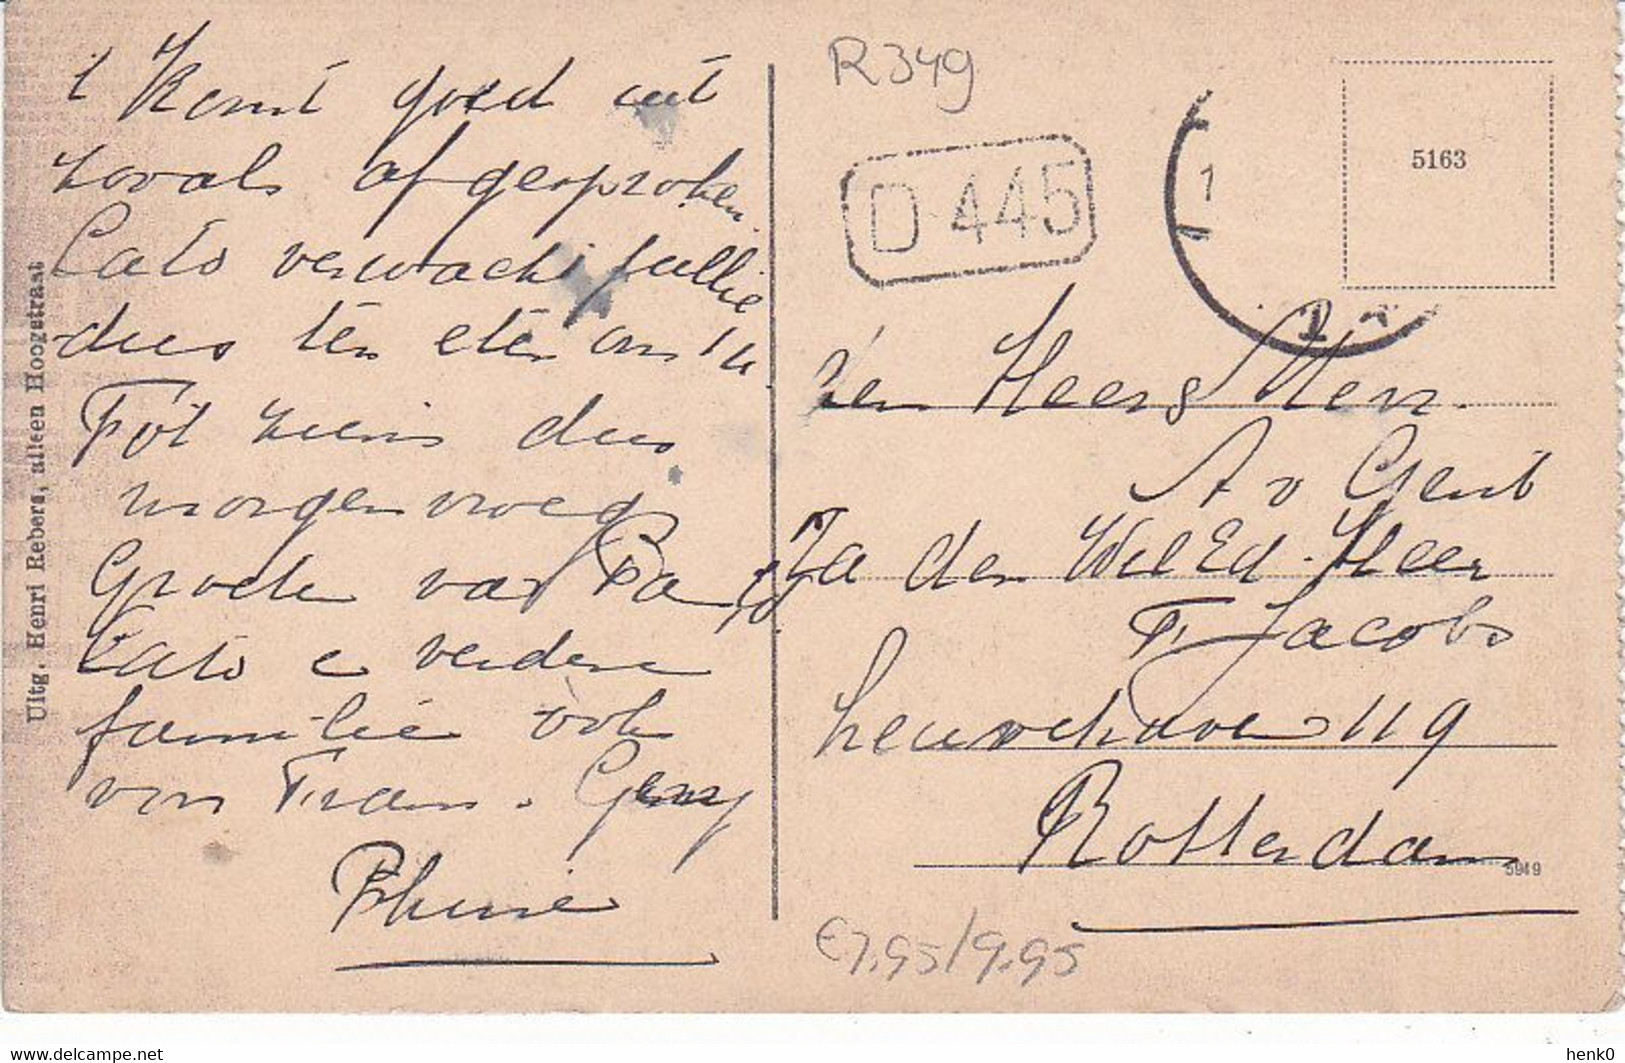 't Komt goed uit
zooals afgesproken.
Cato verwacht jullie
dus ten eten om 1 u.
Tot ziens dus
morgen vroeg
Groeten van Pa
Cato e verdere
familie ook
van Frans. Gerry
Uitg. Henri Rebers, alleen Hoogstraat
R349
D 445
1
5163
den Heer
A v Gent
den Wel Ed. Heer
F. Jacobs
Leuvehaven 119
Rotterdam
5949
€7,95/9,95
henk0
www.delcampe.net